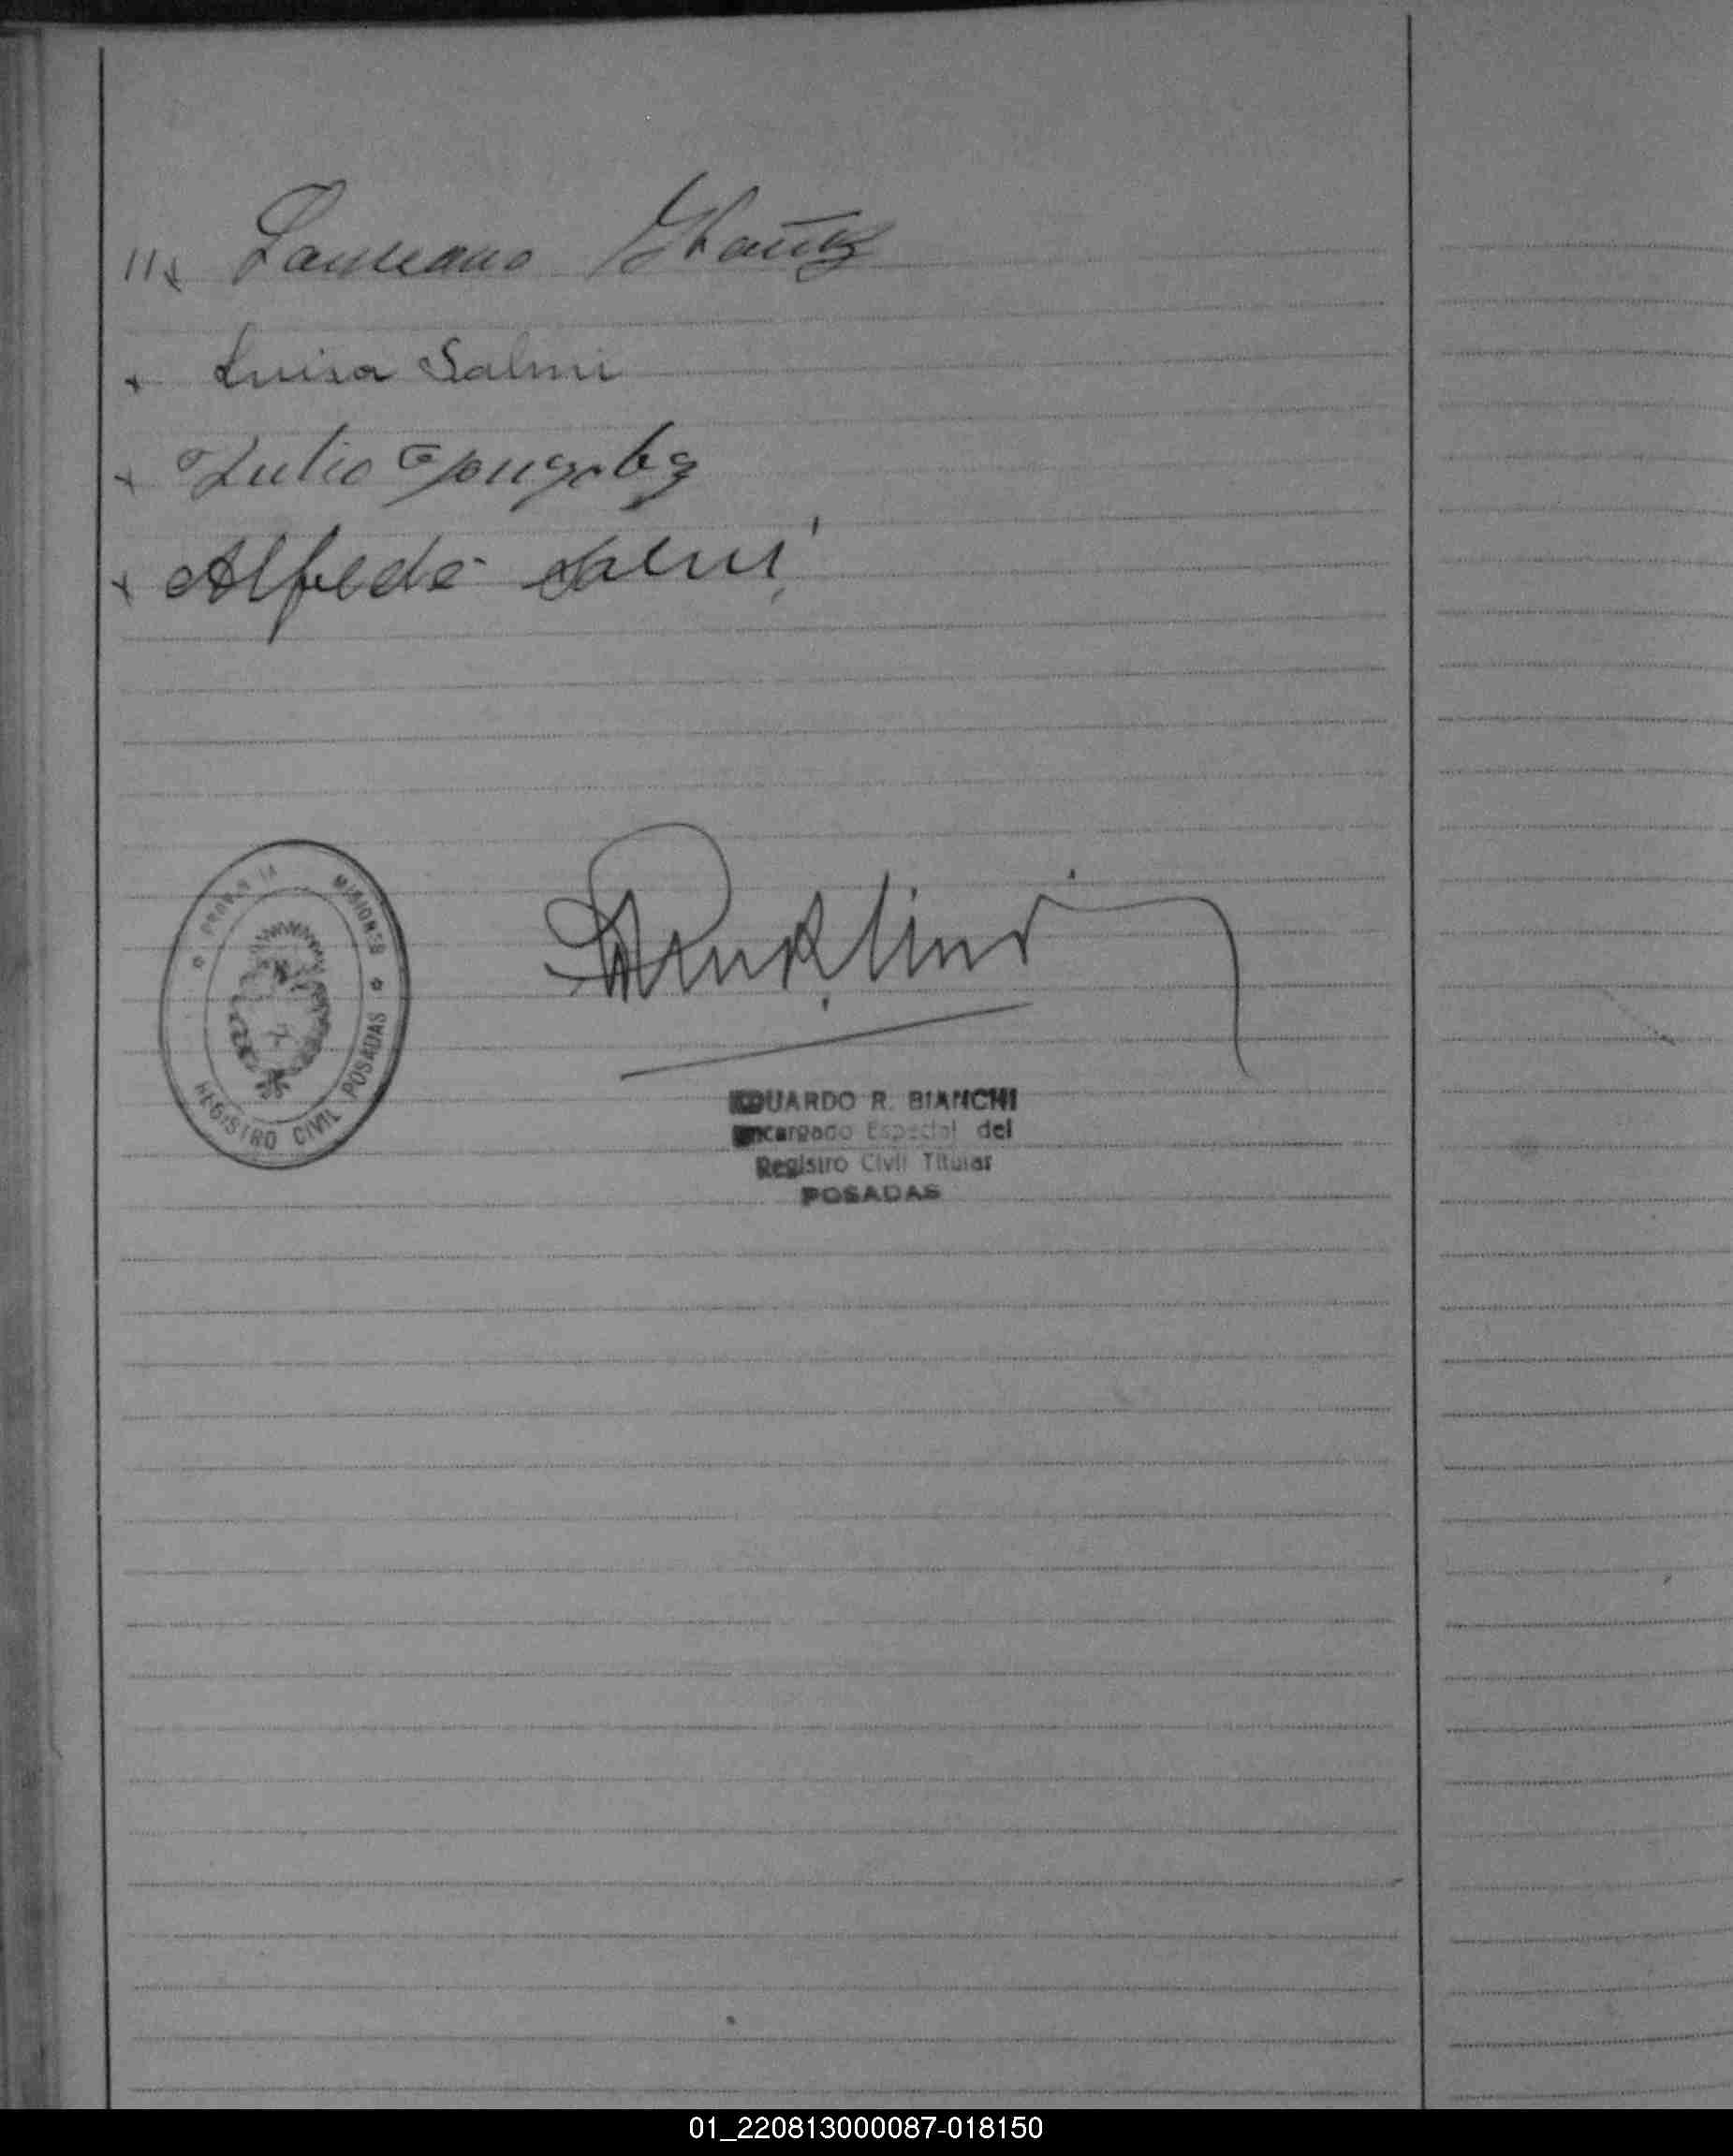 Laureano
Luisa Salmi
Julio Gonzalez
Alfredo Salmi
PROVINCIA MISIONES
REGISTRO CIVIL POSADAS
EDUARDO R. BIANCHI
Encargado Especial del
Registro Civil Titular
POSADAS
01_220813000087-018150